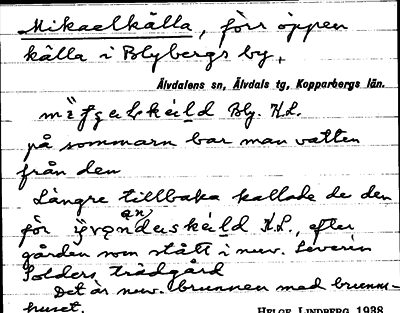 Mikaelkälla, förr öppen
källa i Blybergs by,
Älvdalens sn, Älvdals tg, Kopparbergs län.
Bly. K.L.
på sommarn bar man vatten
från den
Längre tillbaka kallade de den
för K.L., efter
gården som stått i nuv. Severin
Solders trädgård
Det är nuv. brunnen med brunns-
huset.
HELGE LINDBERG 1938